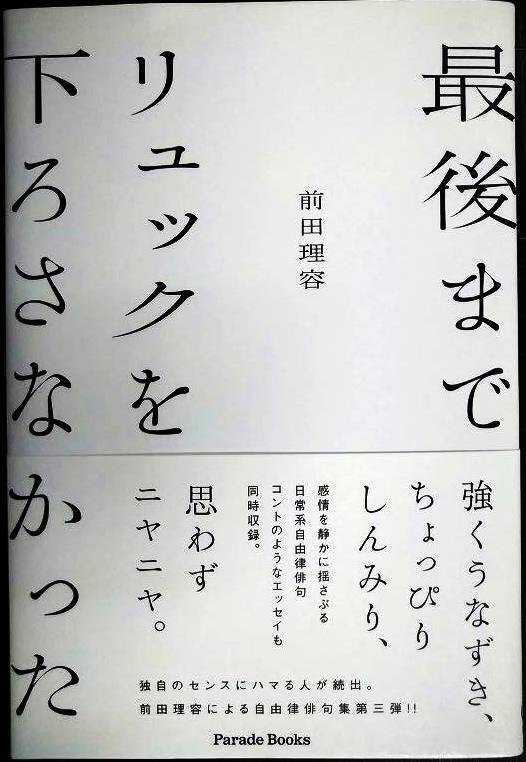 最後まで
リュックを
下ろさなかった
前田理容
強くうなずき、
ちょっぴり
しんみり、
感情を静かに揺さぶる
日常系自由律俳句
コントのようなエッセイも
同時収録。
思わず
ニヤニヤ。
独自のセンスにハマる人が続出。
前田理容による自由律俳句集第三弾!!
Parade Books